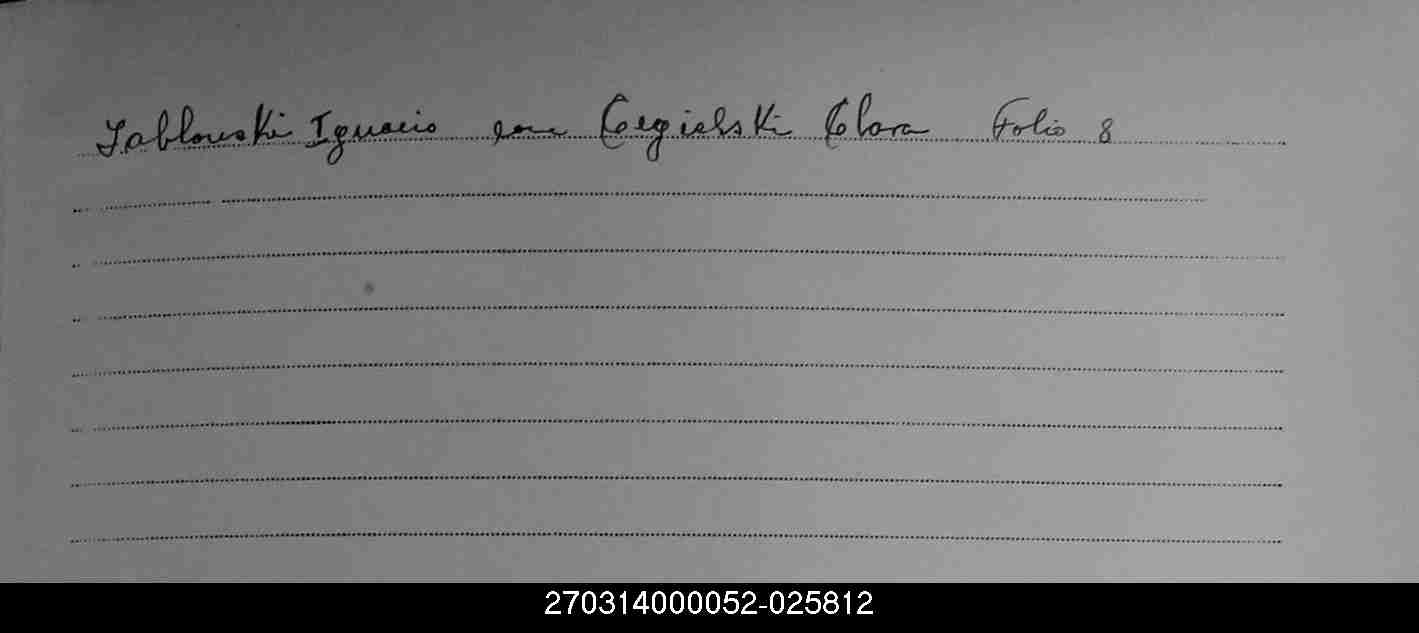 Jablouski Ignacio con Cegielski Clara Folio 8
270314000052-025812